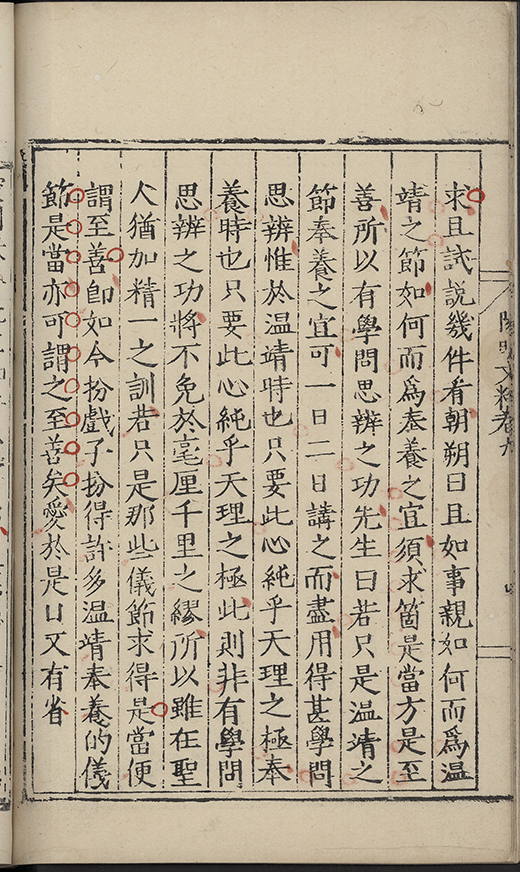 求且試説幾件看朝朔曰且如事親如何而爲温
凊之節如何而爲奉養之宜須求箇是當方是至
善所以有學問思辨之功先生曰若只是温凊之
節奉養之宜可一日二日講之而盡用得甚學問
思辨惟於温凊時也只要此心純乎天理之極奉
養時也只要此心純乎天理之極此則非有學問
思辨之功將不免於毫厘千里之繆所以雖在聖
人猶加精一之訓若只是那些儀節求得是當便
謂至善卽如今扮戲子扮得許多温凊奉養的儀
節是當亦可謂之至善矣愛於是日又有省